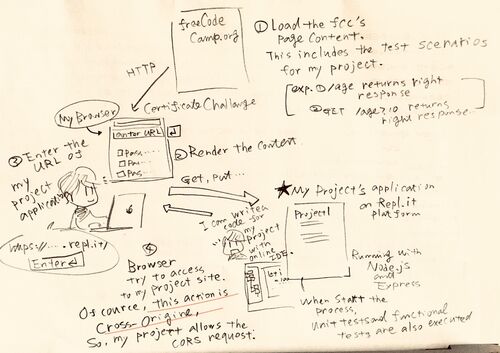 freeCode
Camp.org
HTTP
① Load the fCC's
Page Content.
This includes the test scenarios
for my project.
exp. ① /age returns right
response
② GET /age?10 returns
right response
My Browser
Certificate Challange
Enter URL
Pass....
Pa....
Pas...
② Render the Content.
③ Enter the
URL of
my
project
application
https://.... .repl.it/
Enter
Get, put...
★ My Project's application
on Repl.it
platform
Project1
I can write a
code for
my
Project
with
online
IDE.
Running with
Node.js
and
Express
when start the
process,
Unit tests and functional
tests are also executed
④
Browser
try to access
to my project site.
Of cource, this action is
Cross-Origine,
So, my project allows the
CORS request.